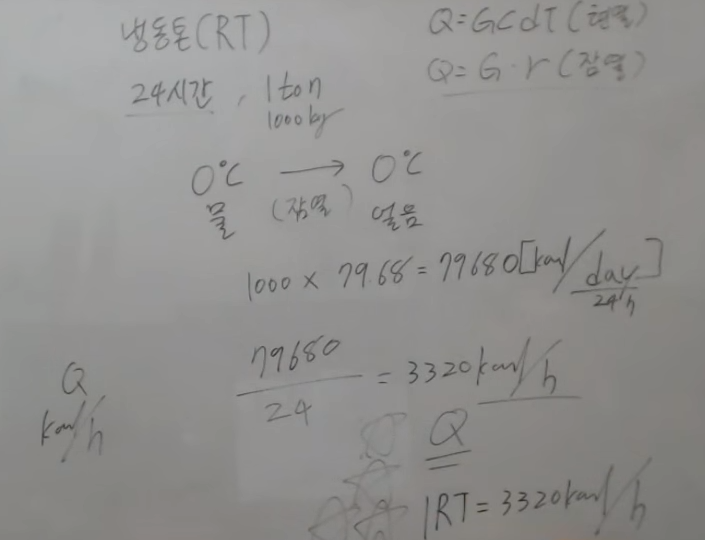 냉동톤(RT)
Q=GCdT(현열)
Q=G·r(잠열)
24시간, 1ton
1000kg
0℃ → 0℃
물 (잠열) 얼음
1000 × 79.68 = 79680[kcal/day]
24h
79680
24
= 3320kcal/h
Q
kcal/h
Q
1RT = 3320kcal/h